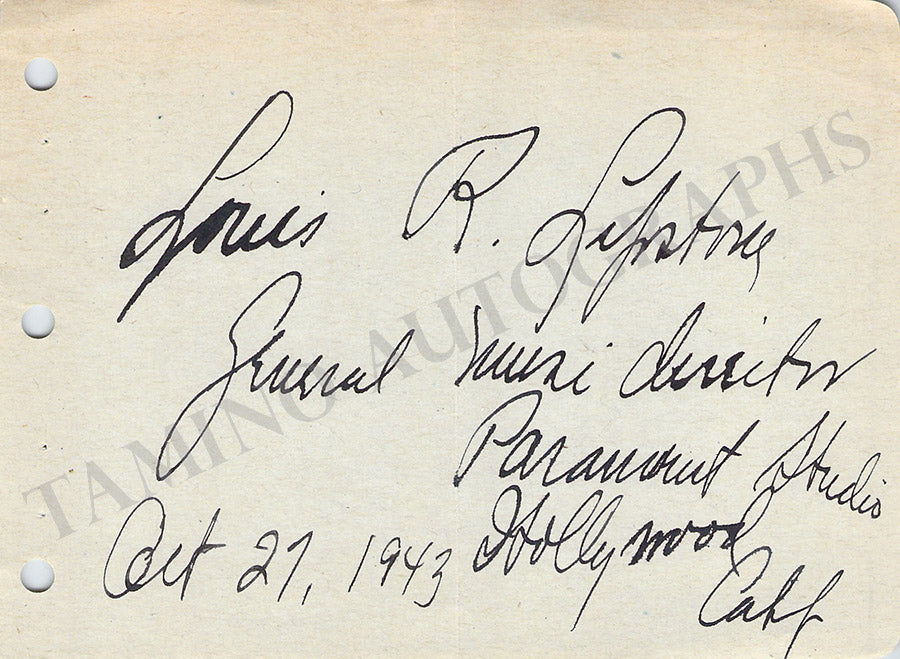 Louis R. Lipstone
General Music director
Paramount Studio
Hollywood
Oct 27, 1943
Calif
TAMINO AUTOGRAPHS